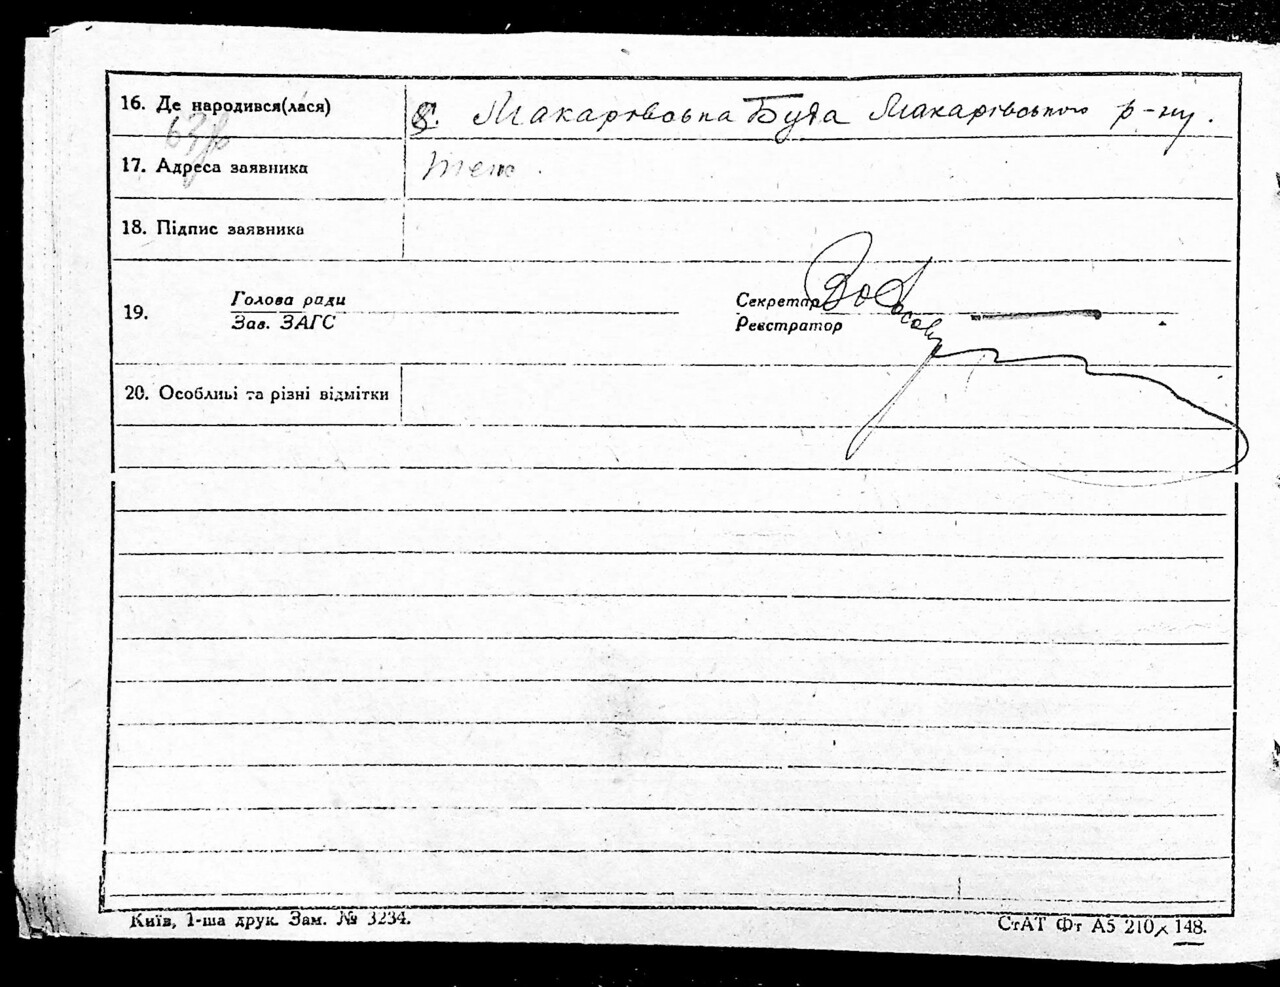 16. Де народився(лася) с. Макарівська Буда Макарівського р-ну.
17. Адреса заявника теж.
18. Підпис заявника
19. Голова ради Секретар
Зав. ЗАГС Реєстратор
20. Особливі та різні відмітки
Київ, 1-ша друк. Зам. № 3234. СтАТ Фт А5 210х148.